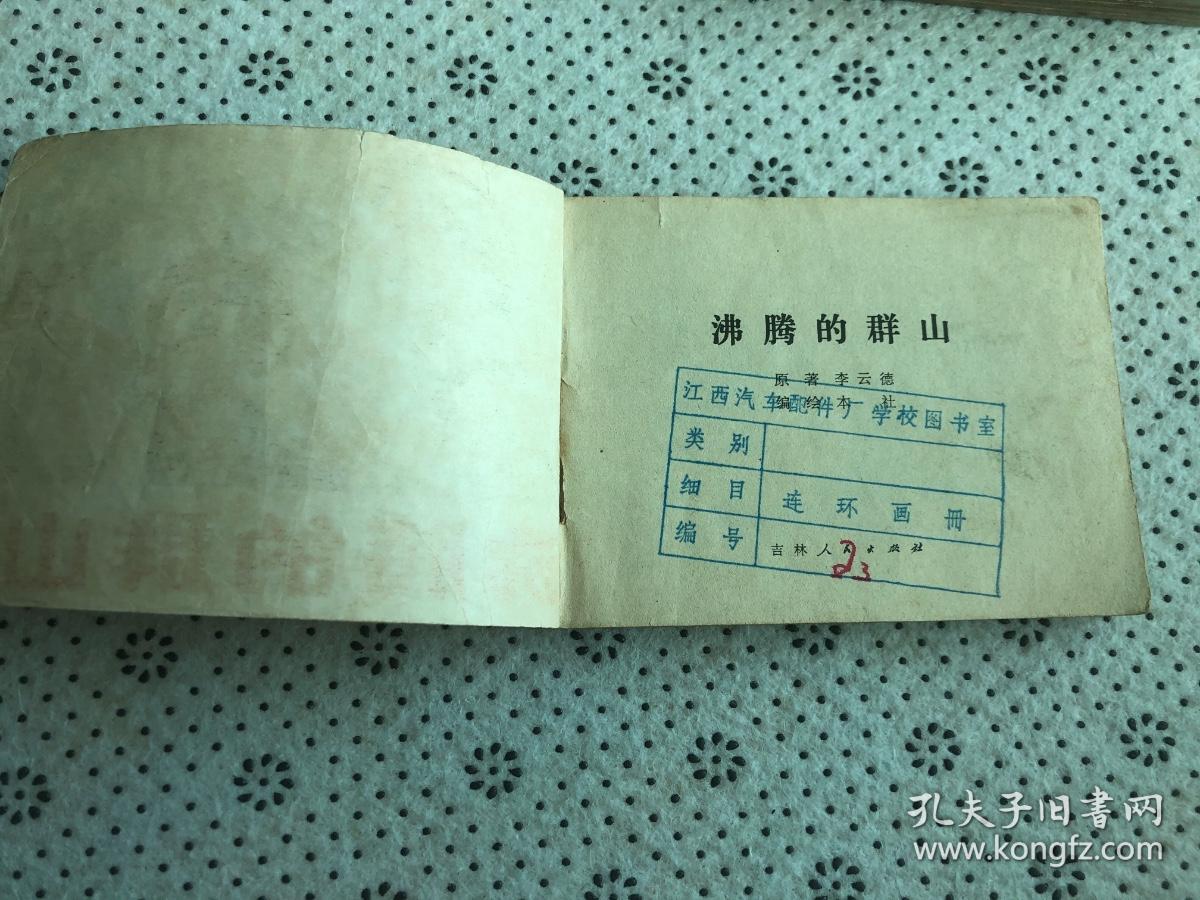 沸腾的群山
原著李云德
编绘本社
江西汽车配件厂学校图书室
类别
细目 连环画册
编号
吉林人民出版社
23
孔夫子旧書网
www.kongfz.com